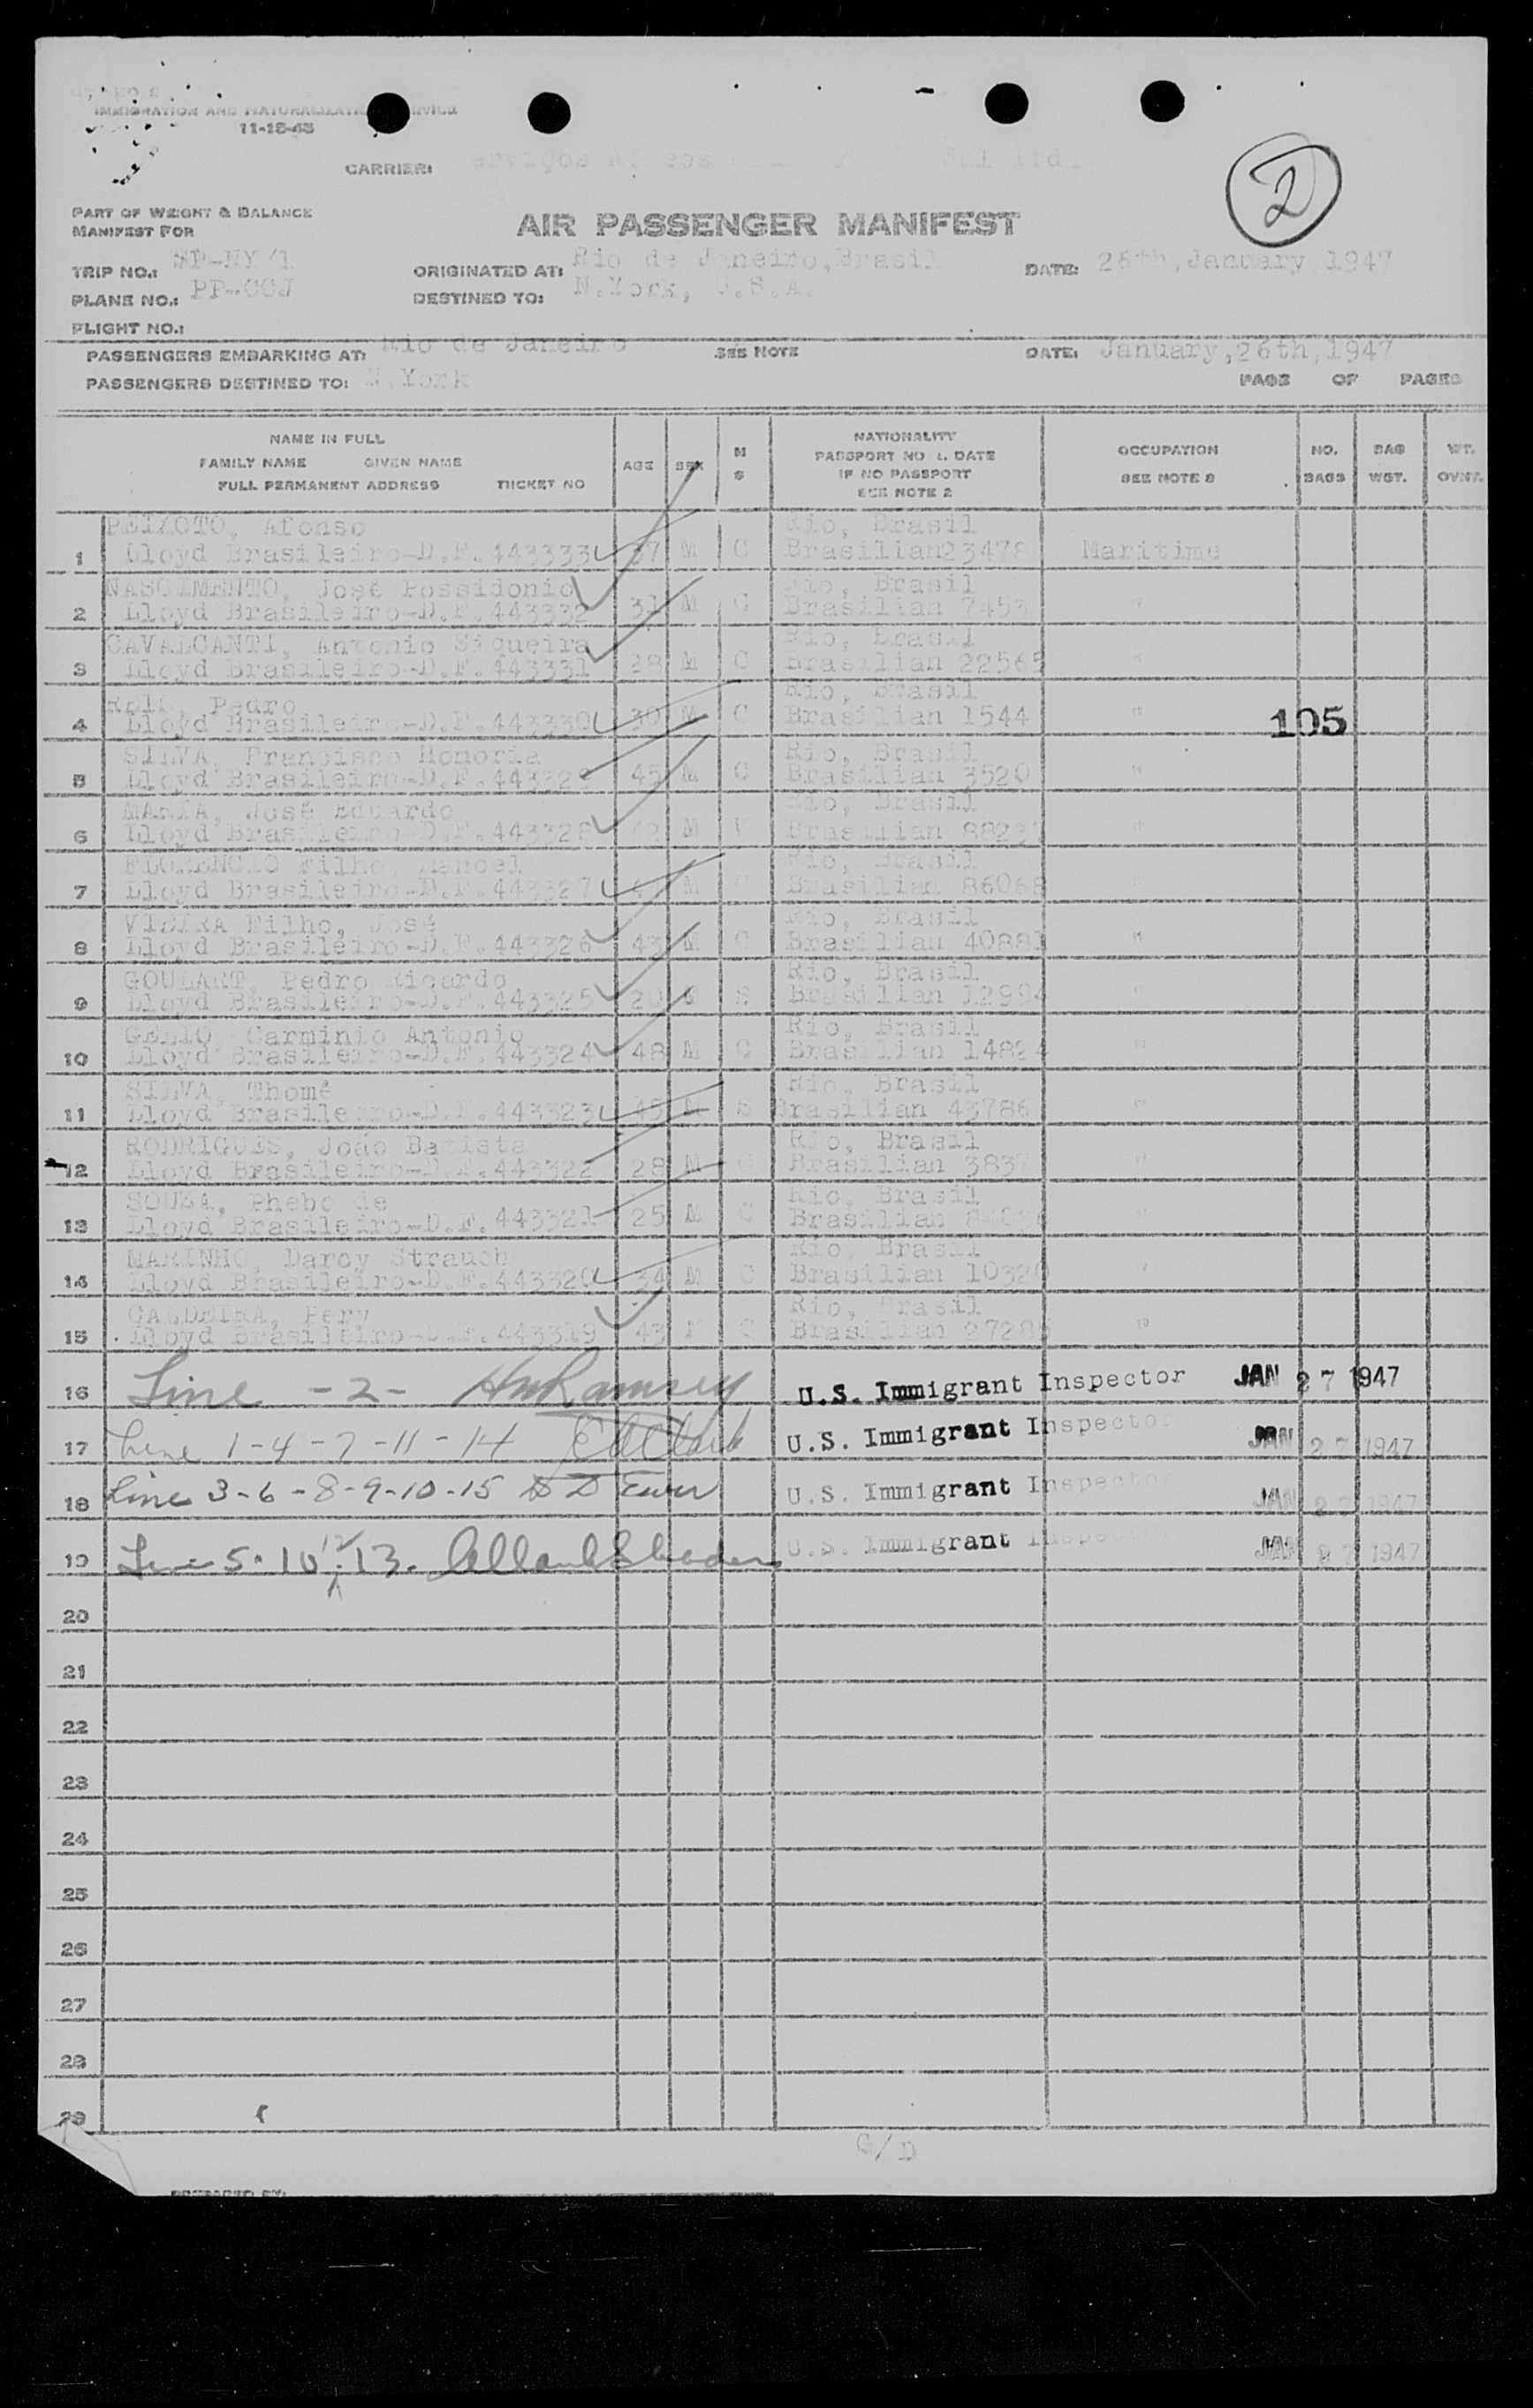 IMMIGRATION AND NATURALIZATION SERVICE
11-18-45
CARRIER:
2
PART OF WEIGHT & BALANCE
MANIFEST FOR
AIR PASSENGER MANIFEST
TRIP NO.:
ORIGINATED AT: Rio de Janeiro, Brasil
DATE: 26th, January 1947
PLANE NO.: PP-CCJ
DESTINED TO: N.York, U.S.A.
FLIGHT NO.:
PASSENGERS EMBARKING AT: Rio de Janeiro
SEE NOTE
DATE: January, 26th, 1947
PASSENGERS DESTINED TO: N.York
PAGE OF PAGES
NAME IN FULL
FAMILY NAME GIVEN NAME
FULL PERMANENT ADDRESS TICKET NO
AGE SEX M S
NATIONALITY
PASSPORT NO & DATE
IF NO PASSPORT
SEE NOTE 2
OCCUPATION
SEE NOTE 3
NO. BAGS
BAG WGT.
WT. OVNT.
PEIXOTO, Afonso Rio, Brasil
1 Lloyd Brasileiro-D.F. 443333 37 M C Brasilian 23478 Maritime
NASCIMENTO, José Possidonio Rio, Brasil
2 Lloyd Brasileiro-D.F. 443332 31 M C Brasilian 7453 "
CAVALCANTI, Antonio Siqueira Rio, Brasil
3 Lloyd Brasileiro-D.F. 443331 28 M C Brasilian 22565 "
Pedro Rio, Brasil
4 Lloyd Brasileiro-D.F. 443330 30 M C Brasilian 1544 " 105
SILVA, Francisco Honoria Rio, Brasil
5 Lloyd Brasileiro-D.F. 443329 45 M C Brasilian 3520 "
José Eduardo Rio, Brasil
6 Lloyd Brasileiro-D.F. 443328 M Brasilian "
FLORENCIO Filho, Manoel Rio, Brasil
7 Lloyd Brasileiro-D.F. 443327 M Brasilian 86068 "
VIEIRA Filho, José Rio, Brasil
8 Lloyd Brasileiro-D.F. 443326 43 M C Brasilian 40881 "
GOULART, Pedro Ricardo Rio, Brasil
9 Lloyd Brasileiro-D.F. 443325 20 M S Brasilian 12994 "
Carminio Antonio Rio, Brasil
10 Lloyd Brasileiro-D.F. 443324 48 M C Brasilian 14824 "
SILVA, Thomé Rio, Brasil
11 Lloyd Brasileiro-D.F. 443323 45 M S Brasilian 43786 "
RODRIGUES, João Batista Rio, Brasil
12 Lloyd Brasileiro-D.F. 443322 28 M Brasilian "
SOUZA, Phebo de Rio, Brasil
13 Lloyd Brasileiro-D.F. 443321 25 M C Brasilian
MARINHO, Darcy Strauch Rio, Brasil
14 Lloyd Brasileiro-D.F. 443320 34 M C Brasilian "
CALDEIRA, Pery Rio, Brasil
15 Lloyd Brasileiro-D.F. 443319 43 M C Brasilian "
16 Line -2- HmRamsey U.S. Immigrant Inspector JAN 27 1947
17 Line 1-4-7-11-14 U.S. Immigrant Inspector JAN 27 1947
18 Line 3-6-8-9-10-15 U.S. Immigrant Inspector JAN 27 1947
19 Line 5. 10 12 13. U.S. Immigrant Inspector JAN 27 1947
20
21
22
23
24
25
26
27
28
29
G/D
PREPARED BY: